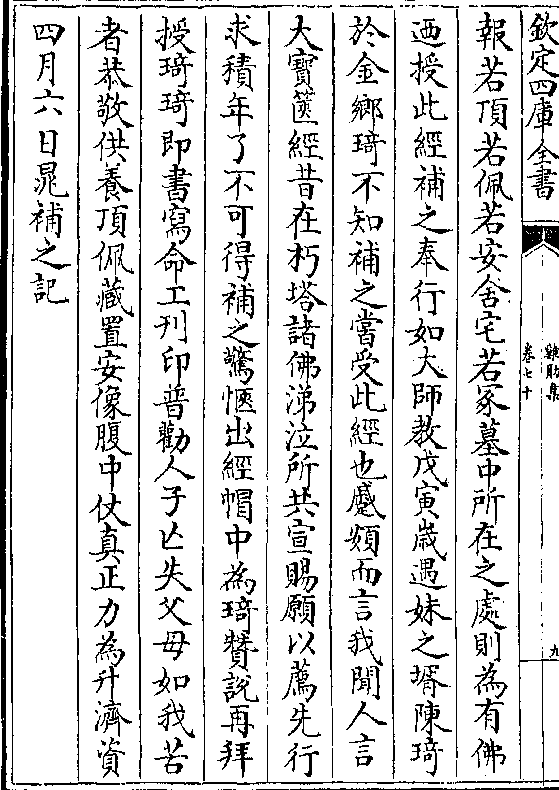 欽定四庫全書
雞肋集
卷七十
九
報若頂若佩若安舍宅若冢墓中所在之處則為有佛
迺授此經補之奉行如大師教戊寅歲遇妹之壻陳琦
於金鄉琦不知補之嘗受此經也蹙頞而言我聞人言
大寳篋經昔在朽塔諸佛涕泣所共宣賜願以薦先行
求積年了不可得補之驚愜出經帽中為琦贊說再拜
授琦琦即書寫命工刊印普勸人子亡失父母如我苦
者恭敬供養頂佩藏置安像腹中仗真正力為升濟資
四月六日晁補之記